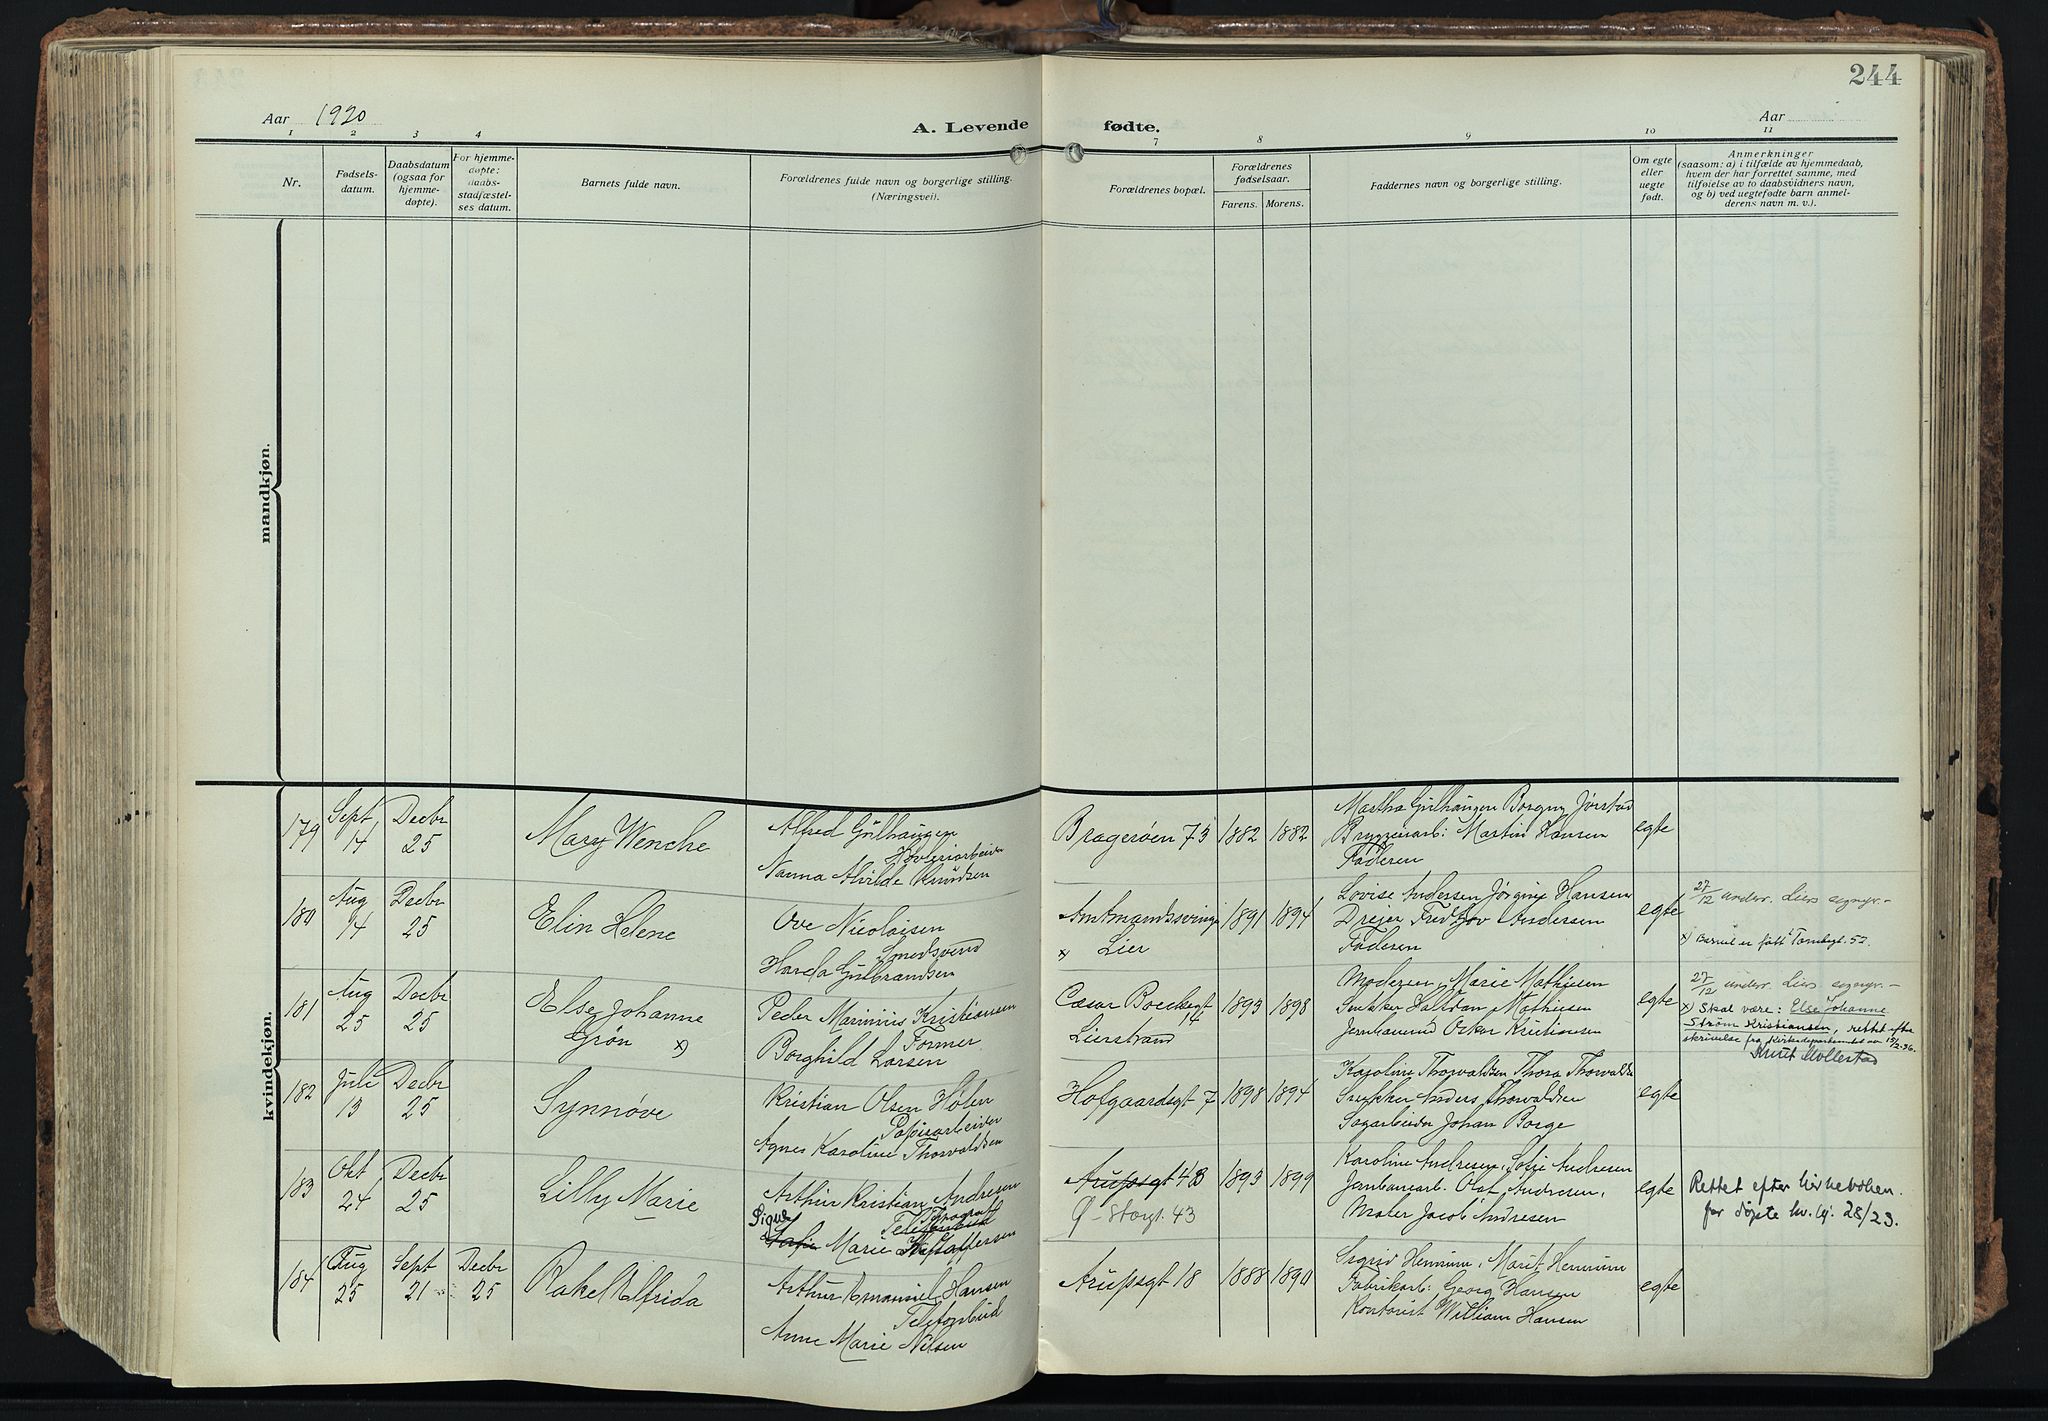 244
Aar 1920
A. Levende fødte.
Aar
1 2 3 4 7 8 9 10 11
Nr.
Fødsels-
datum.
Daabsdatum
(ogsaa for
hjemme-
døpte).
For hjemme-
døpte:
daabs-
stadfæstel-
ses datum.
Barnets fulde navn.
Forældrenes fulde navn og borgerlige stilling.
(Næringsvei).
Forældrenes bopæl.
Forældrenes
fødselsaar.
Farens. Morens.
Faddernes navn og borgerlige stilling.
Om egte
eller
uegte
født.
Anmerkninger
(saasom: a) i tilfælde av hjemmedaab,
hvem der har forrettet samme, med
tilføielse av to daabsvidners navn,
og b) ved uegtefødte barn anmel-
derens navn m. v.).
mandkjøn.
kvindekjøn.
179
Sept
14
Decbr
25
Mary Wenche
Alfred Gulhaugen
Høvleriarbeider
Nanna Alvilde Knudsen
Bragerøen 73
1882
1882
Martha Gulhaugen Borgny Jørstad
Bryggeriarb: Martin Hansen
Faderen
egte
180
Aug
14
Decbr
25
Elin Helene
Ove Nicolaisen
Smedsvend
Harda Gulbrandsen
Amtmandsvingen
x) Lier
1891
1894
Lovise Andersen Jørgine Hansen
Drejer Fredtjov Andersen
Faderen
egte
27/12 underr. Liers sognepr.-
x) Barnet er født i Tornebygt. 52.
181
Aug
25
Decbr
25
Else Johanne
Grøn x)
Peder Marinius Kristiansen
Former
Borghild Larsen
Cæsar Boecksgt 14
Lierstrand
1893
1898
Moderen, Marie Mathisen
Snekker Halfdan Mathisen
Jernbanemd Oskar Kristiansen
egte
27/12 underr. Liers sognepr.-
x) Skal være: Else Johanne
Strøm Kristiansen, rettet efter
skrivelse fra Kirkedepartementet av 15/2-36.
Knut Mollestad
182
Juli
13
Decbr
25
Synnøve
Kristian Olsen Holen
Papirarbeider
Agnes Karoline Thorvaldsen
Hofgaardsgt 7
1898
1894
Karoline Thorvaldsen Thora Thorvaldsen
Snekker Anders Thorvaldsen
Sagarbeider Johan Borge
egte
183
Okt
24
Decbr
25
Lilly Marie
Arthur Kristian Andresen
Typograf
Telefonbud
Signe
Sofie Marie Kristoffersen
Arupsgt 43
Ø-Storgt. 43
1893
1899
Karoline Andresen, Sofie Andresen
Jernbanearb. Olaf Andresen,
Maler Jacob Andresen
egte
Rettet efter kirkeboken
for døpte
28/23.
184
Aug
25
Sept
21
Decbr
25
Rakel Elfrida
Arthur Emanuel Hansen
Telefonbud
Anne Marie Nilsen
Arupsgt 18
1888
1890
Sigrid Hemum, Marit Hemum
Fabrikarb: Georg Hansen
Kontorist William Hansen
egte